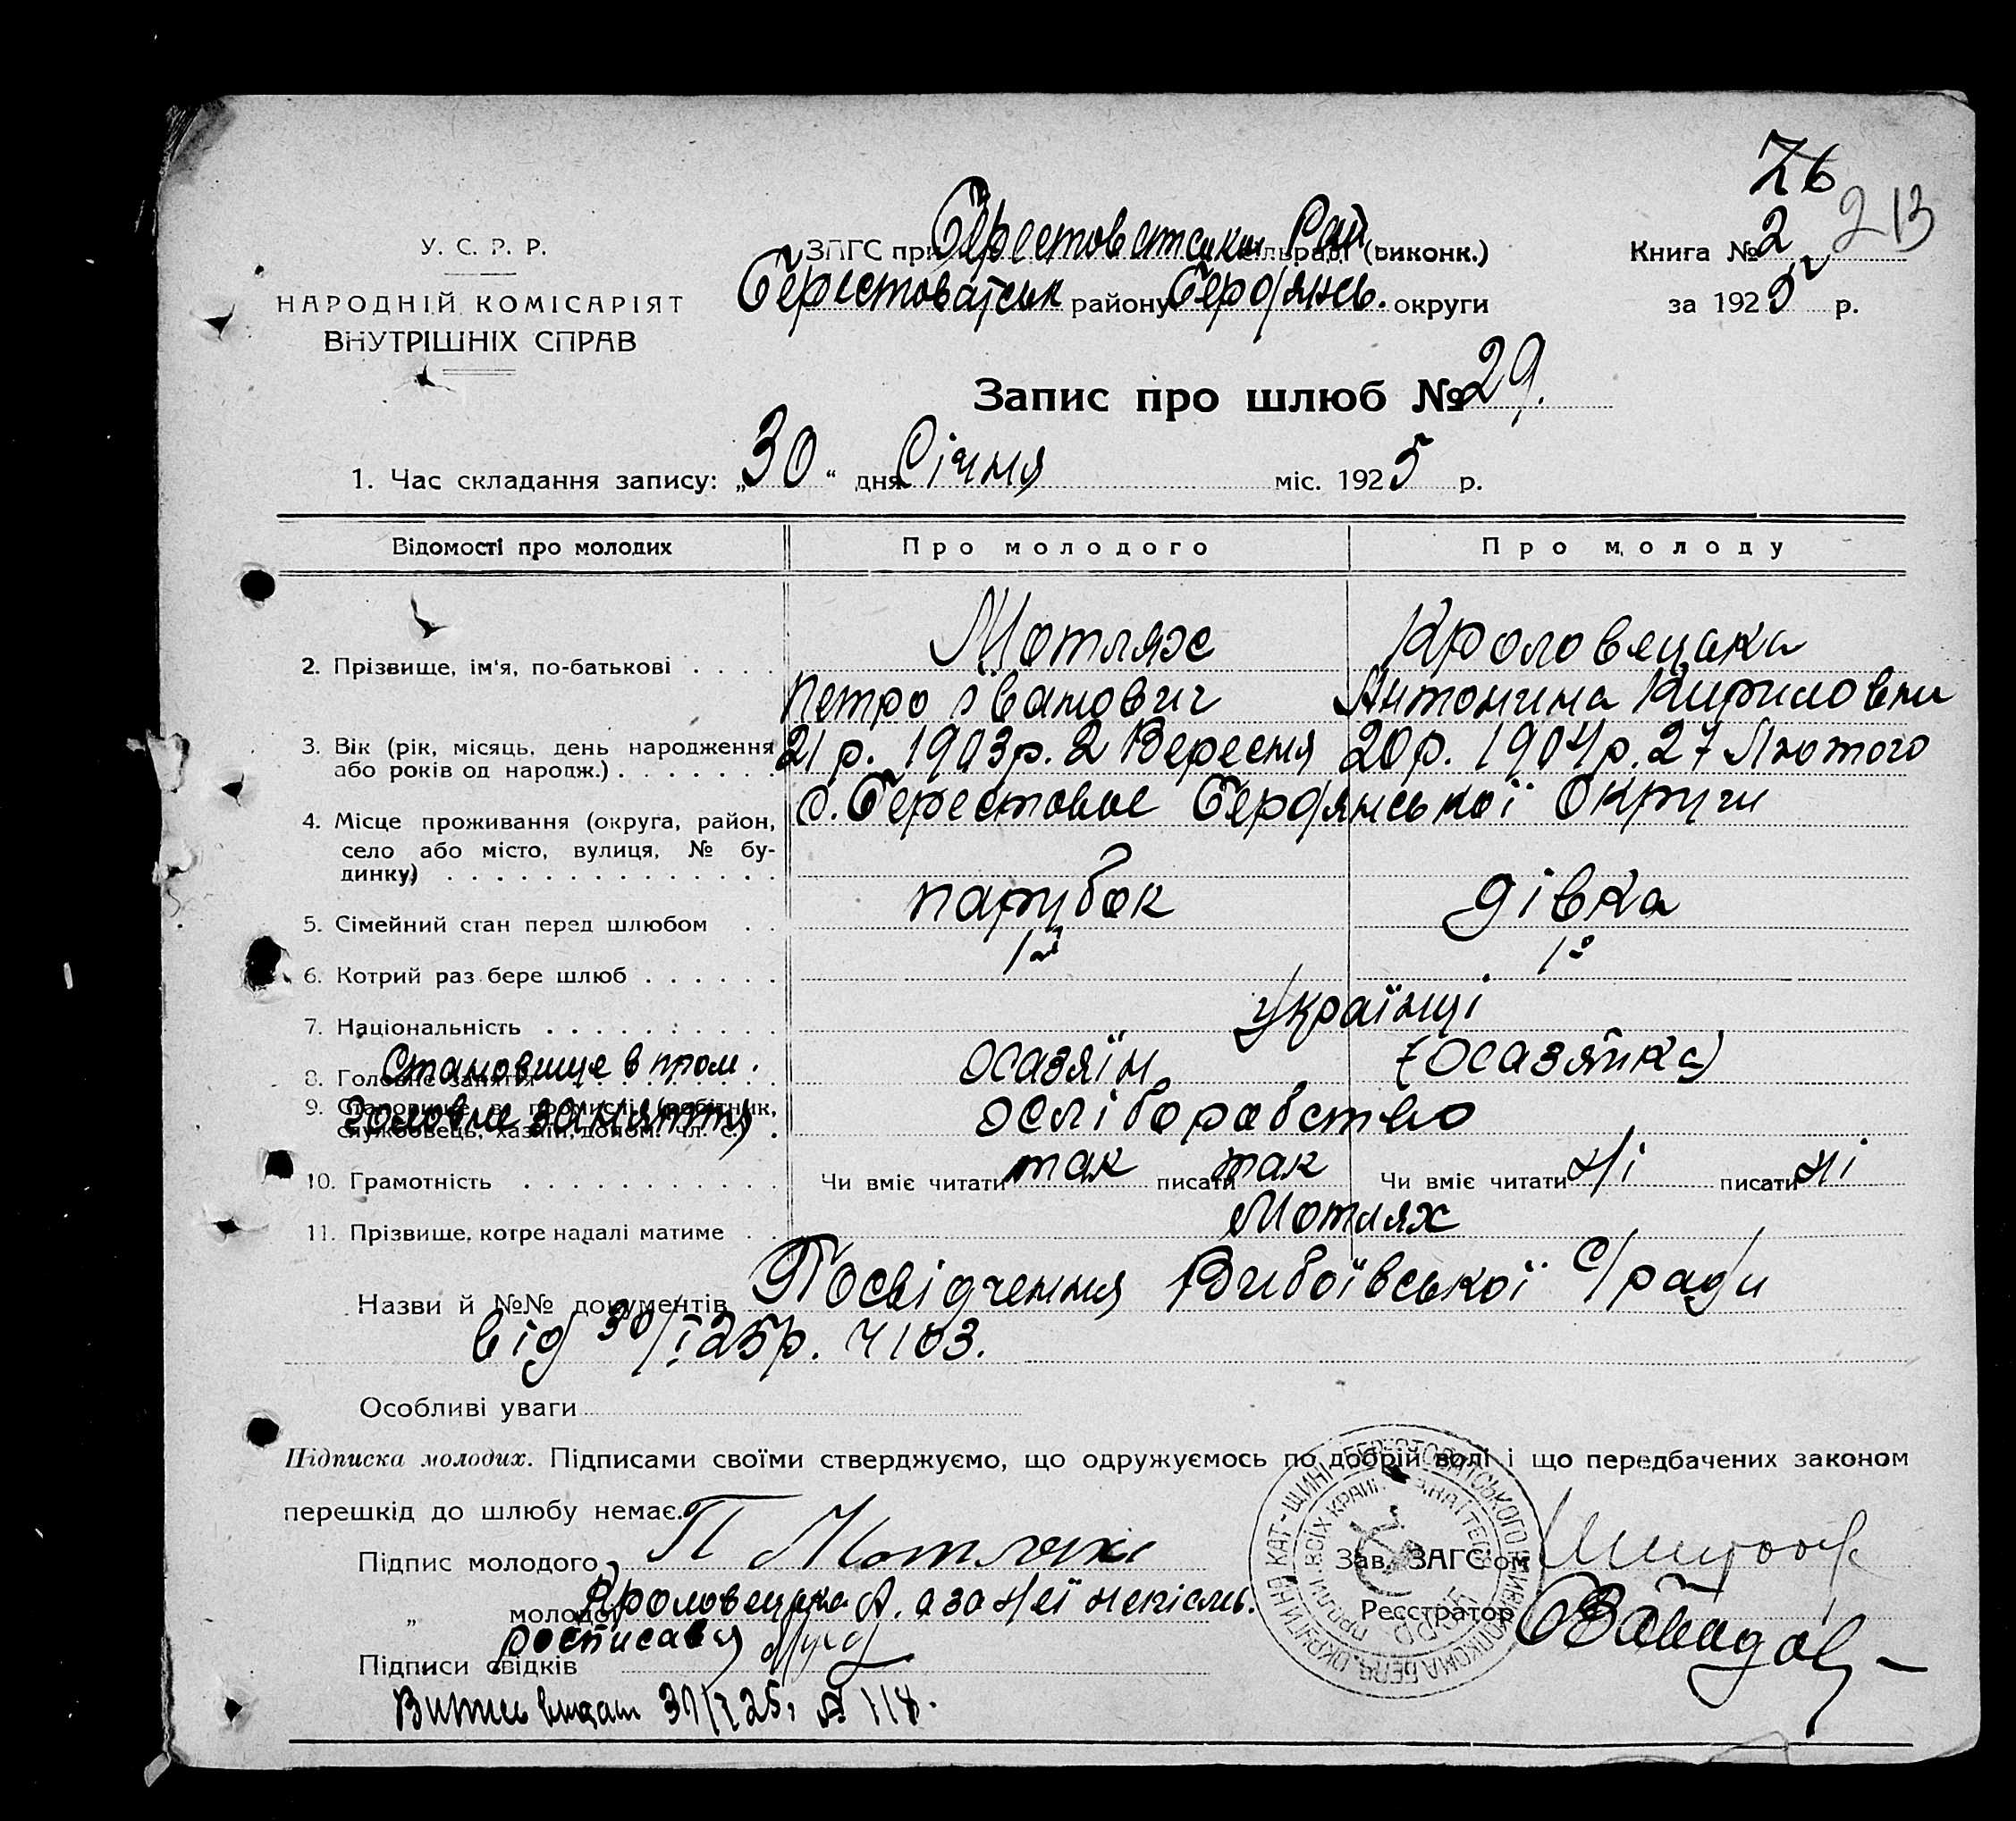 76
213
У. С. Р. Р.
НАРОДНІЙ КОМІСАРІЯТ
ВНУТРІШНІХ СПРАВ
ЗАГС при Берестоватским Рай (виконк.)
Берестоватськ району Бердянсь. округи
Книга № 2
за 1925 р.
Запис про шлюб № 29.
1. Час складання запису: „30“ дня Січня міс. 1925 р.
Відомості про молодих Про молодого Про молоду
2. Прізвище, ім'я, по-батькові Мотляж Кроловецька
Петро Іванович Антонина Кириловни
3. Вік (рік, місяць, день народження 21 р. 1903 р. 2 Вересня 20 р. 1904 р. 27 Лютого
або років од народж.)
4. Місце проживання (округа, район, с. Берестовое Бердянської Округи
село або місто, вулиця, № бу-
динку)
5. Сімейний стан перед шлюбом парубок дівка
6. Котрий раз бере шлюб 1й 1
7. Національність Українці
Становище в пром.
8. Головне заняття хазяїн (хазяйка)
9. Становище в промислі (робітник,
Головне заняття хліборобство
службовець, хазяїн, допом. чл. с.)
10. Грамотність Чи вміє читати так писати так Чи вміє читати Ні писати Ні
11. Прізвище, котре надалі матиме Мотлях
Назви й №№ документів Посвідчення Вибоївської С/ради
від 30/I 25 р. Ч 103.
Особливі уваги
Підписка молодих. Підписами своїми стверджуємо, що одружуємось по добрій волі і що передбачених законом
перешкід до шлюбу немає.
Підпис молодого П Мотляхъ Зав. ЗАГС'ом
„ молодої Кроловецька А. а за неї неписьм. Реєстратор
росписався
Підписи свідків
30/I 25, № 118.